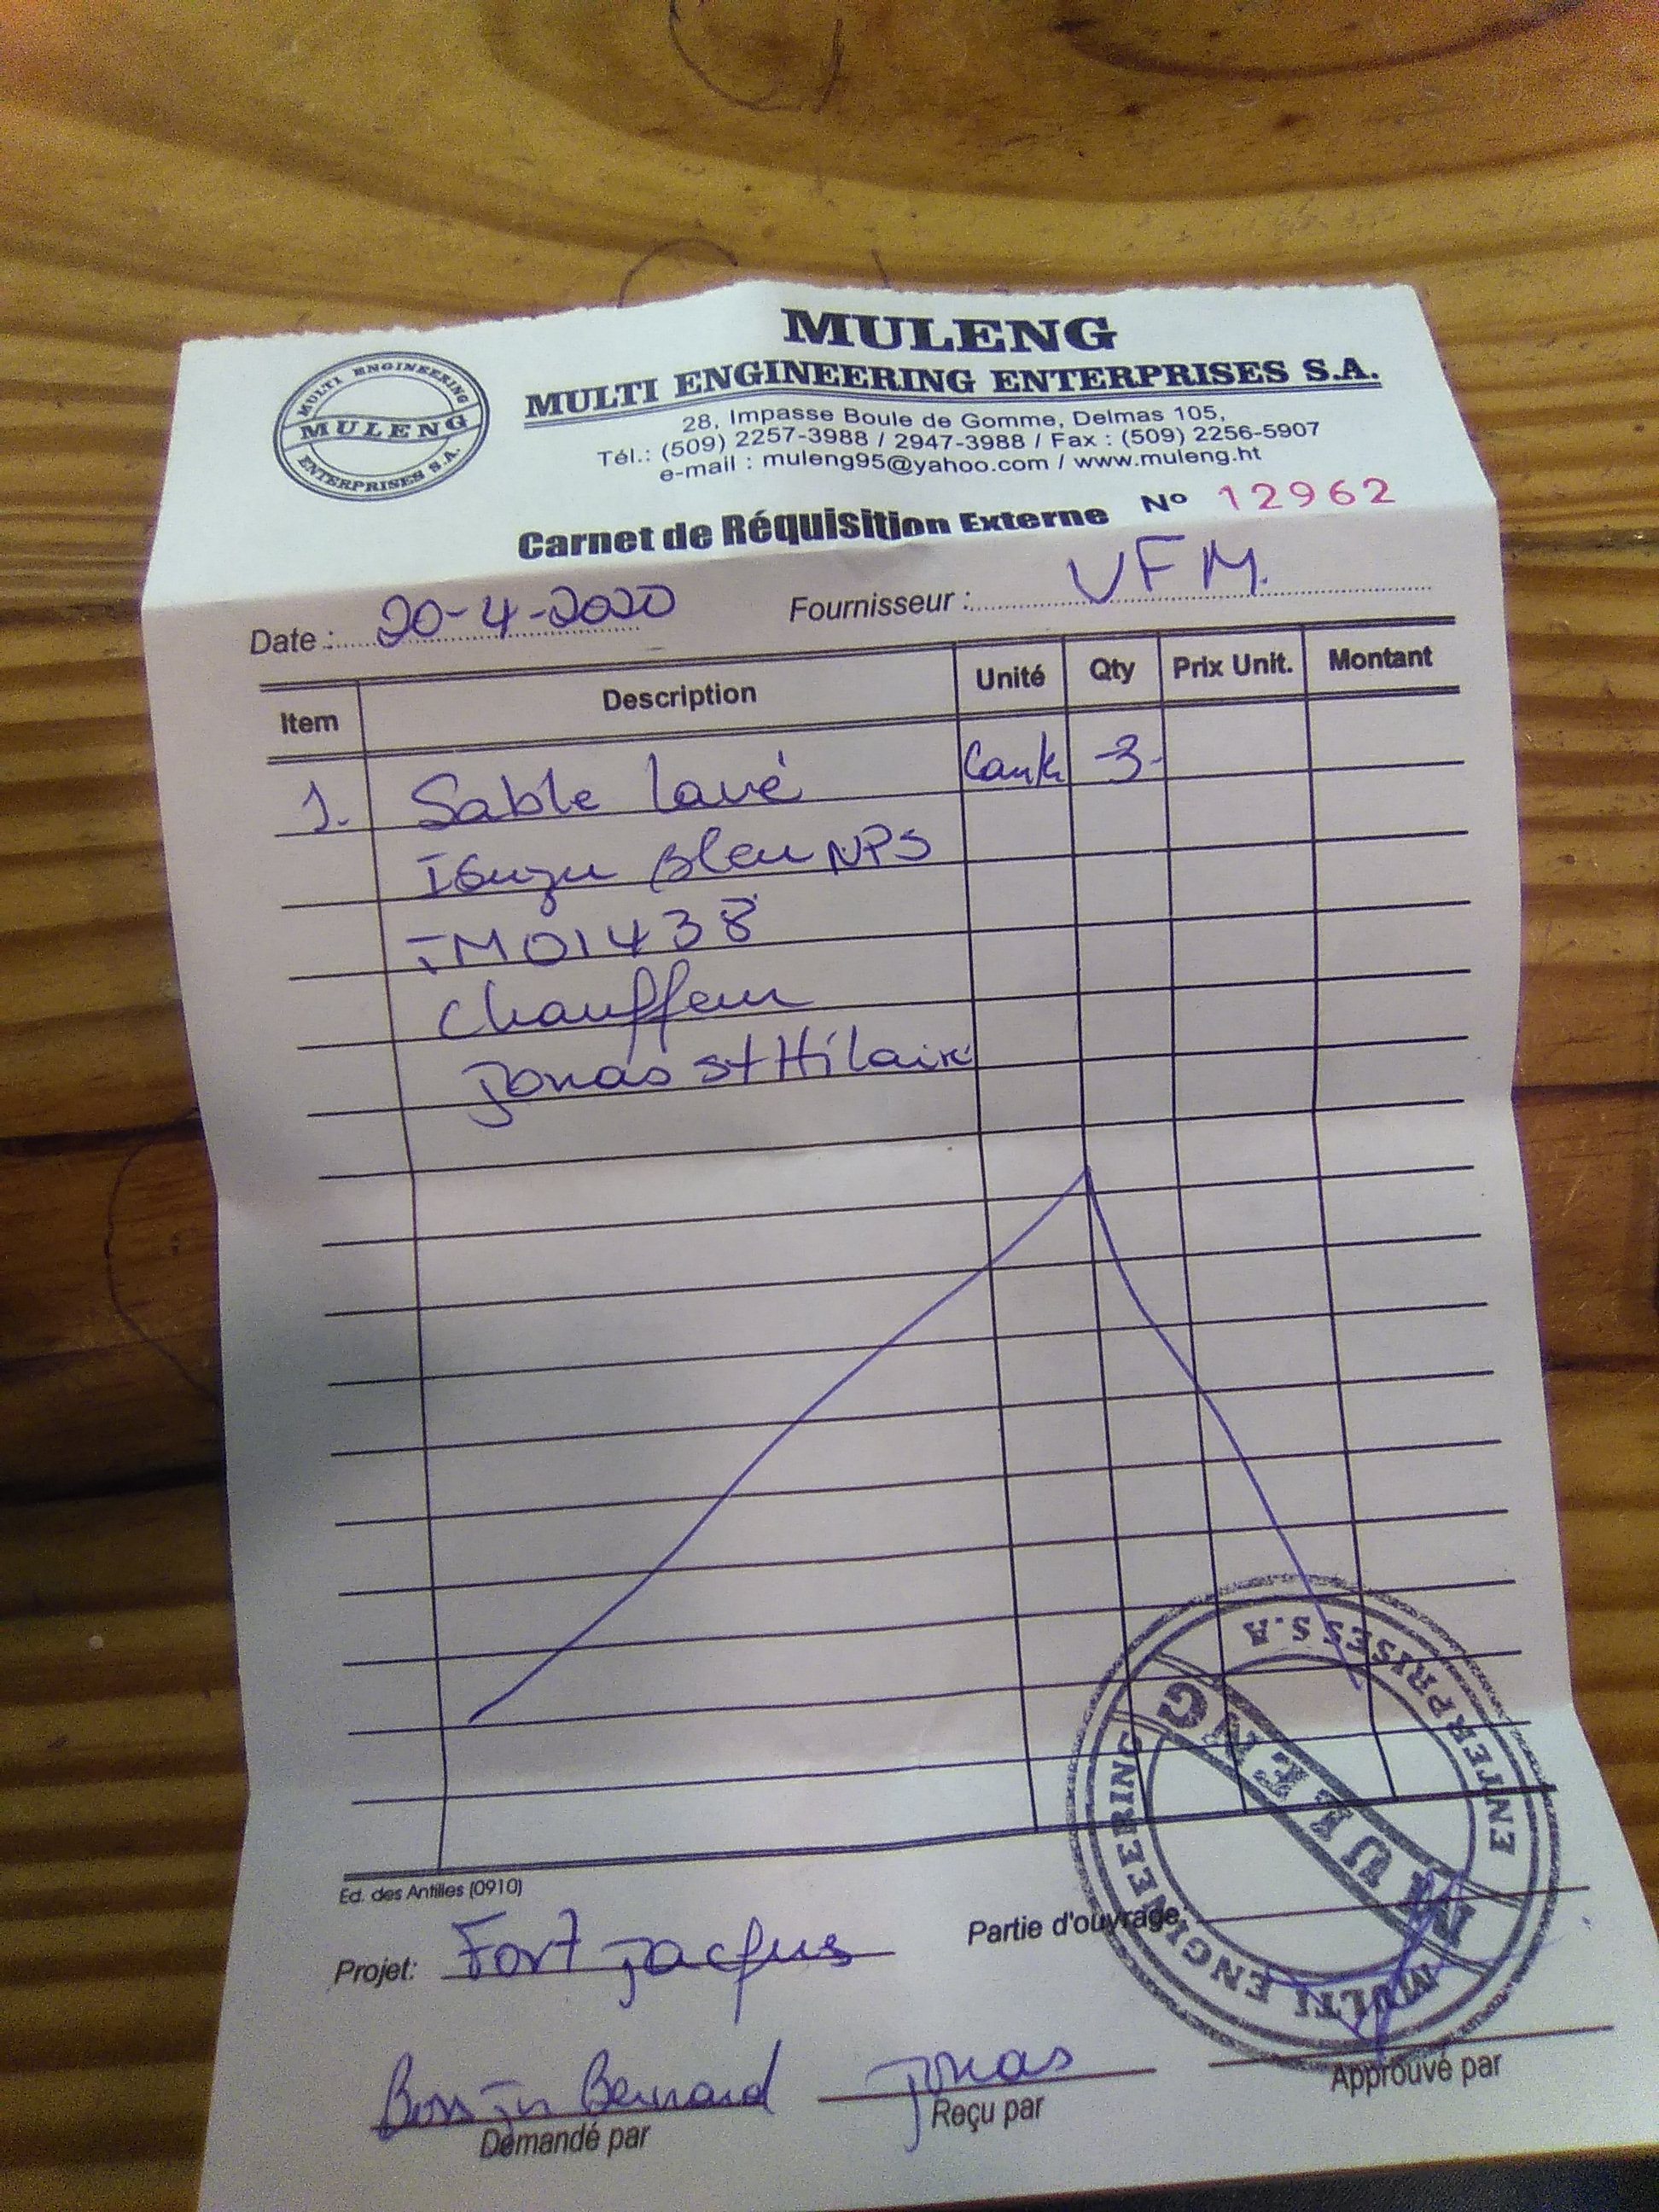 MULENG
MULTI ENGINEERING ENTERPRISES S.A.
MULTI ENGINEERING
MULENG
ENTERPRISES S.A.
28, Impasse Boule de Gomme, Delmas 105,
Tél.: (509) 2257-3988 / 2947-3988 / Fax : (509) 2256-5907
e-mail : muleng95@yahoo.com / www.muleng.ht
Carnet de Réquisition Externe No 12962
Date : 20-4-2020 Fournisseur : VFM.
Item Description Unité Qty Prix Unit. Montant
1. Sable lavé 3
Isuzu Bleu NPS
01438
Chauffeur
Jonas St Hilaire
Ed. des Antilles (0910)
Projet: Fort Jacques Partie d'ouvrage:
Bernard Jonas
Demandé par Reçu par Approuvé par
MULTI ENGINEERING
MULENG
ENTERPRISES S.A